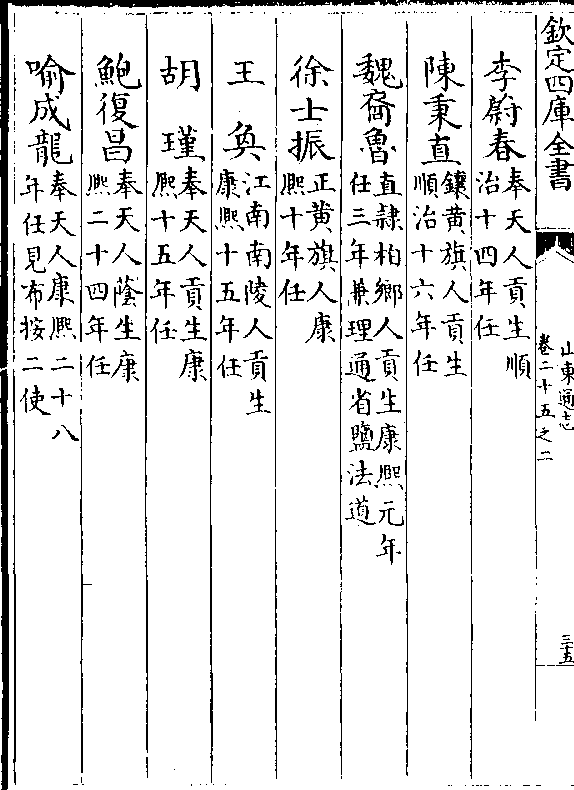 欽定四庫全書
山東通志
卷二十五之二
三十五
李蔚春奉天人貢生順
治十四年任
陳秉直鑲黄旗人貢生
順治十六年任
魏裔魯直隸柏鄉人貢生康熙元年
任三年兼理通省鹽法道
徐士振正黄旗人康
熙十年任
王奐江南南陵人貢生
康熙十五年任
胡瑾奉天人貢生康
熙十五年任
鮑復昌奉天人蔭生康
熙二十四年任
喻成龍奉天人康熙二十八
年任見布按二使